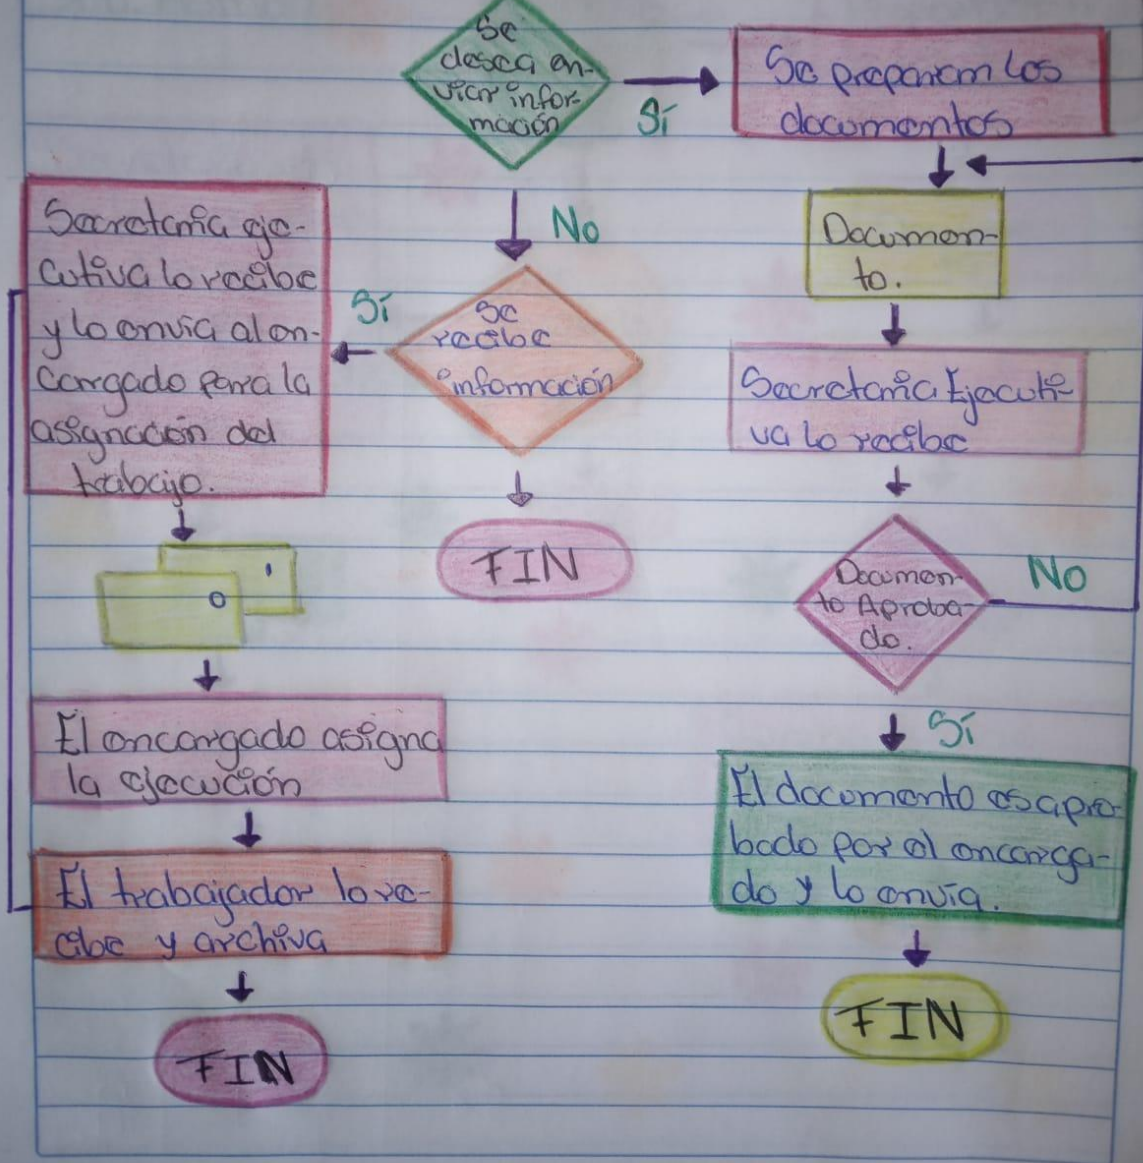 Se
desea en-
viar infor-
mación
Sí
Se preparan los
documentos
No
Documen-
to.
Secretaria eje-
cutiva lo recibe
y lo envía al en-
cargado para la
asignación del
trabajo.
Sí
Se
recibe
información
Secretaria Ejecuti-
va lo recibe
FIN
Documen-
to Aproba-
do.
No
I
O
El encargado asigna
la ejecución
Sí
El documento es apro-
bado por el encarga-
do y lo envía.
El trabajador lo re-
cibe y archiva
FIN
FIN